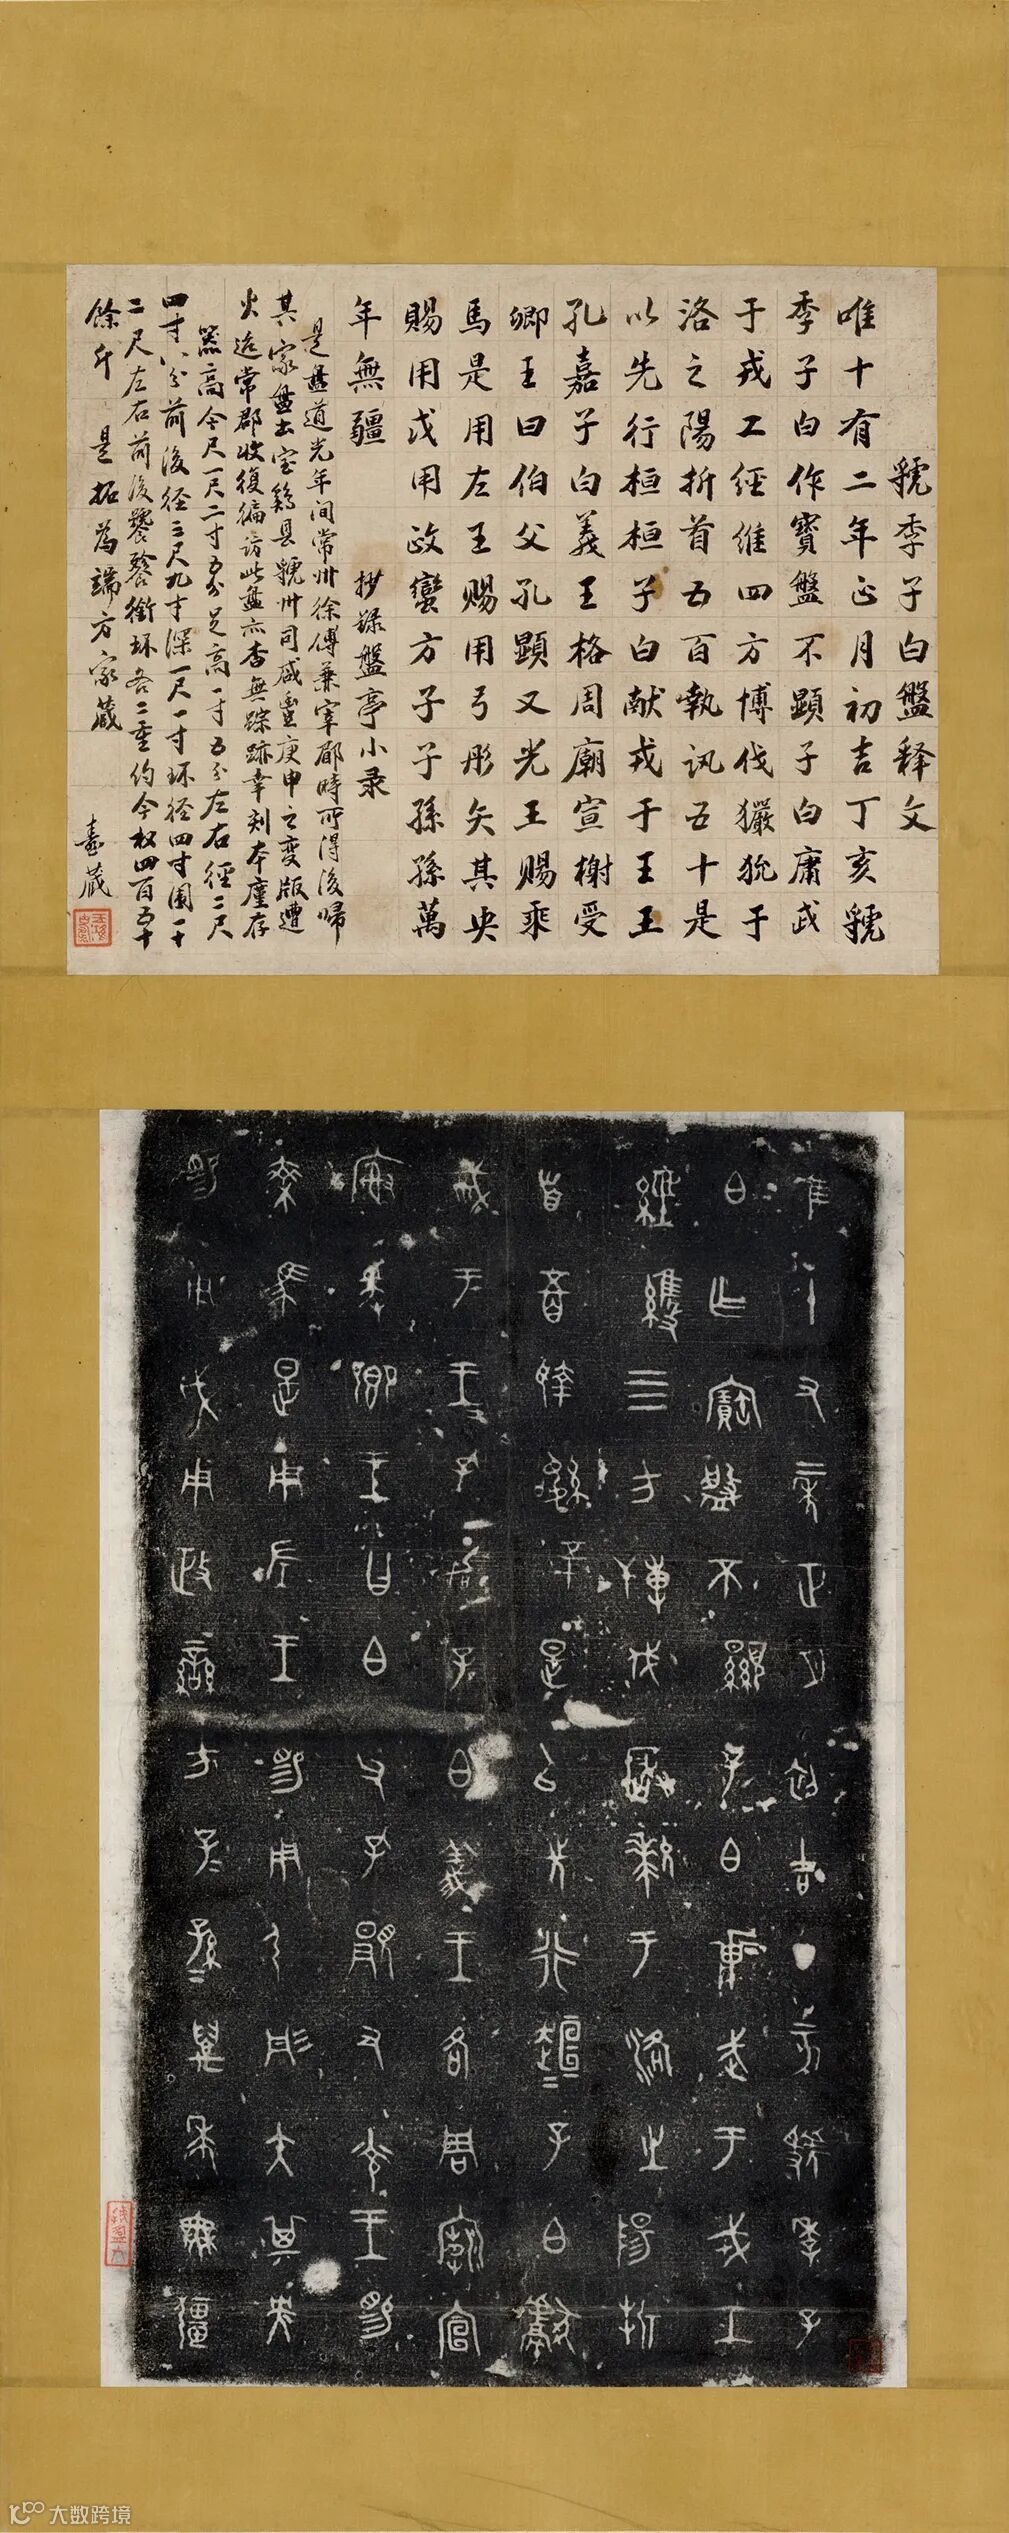 虢季子白盤释文
唯十有二年正月初吉丁亥虢
季子白作寳盤不顯子白庸武
于戎工經維四方博伐玁狁于
洛之陽折首五百執讯五十是
以先行桓桓子白献戎于王王
孔嘉子白義王格周廟宣榭受
卿王曰伯父孔顯又光王賜乘
馬是用左王賜用弓彤矢其央
賜用戉用政蠻方子子孫孫萬
年無疆
抄録盤亭小录
是盘道光年间常州徐傅兼宰郿時所得後歸
其家盘出宝鷄县虢州司咸豊庚申之变版遭
火迨常郡收復徧访此盘亦杳無踪跡幸刻本廑存
器高今尺一尺二寸五分足高一寸五分左右徑二尺
四寸八分前後径三尺九寸深一尺一寸环径四寸围一十
二尺左右前後饕餮銜环各二重约今权四百五十
餘斤 是拓為端方家藏
壴蔵
隹十又二年正月初吉丁亥虢季子
白乍寶盤不顯子白壯武于戎工
經維四方搏伐玁狁于洛之陽折
首五百執訊五十是以先行桓=子白獻
戒于王王孔加子白義王各周廟宣
榭爰卿王曰白父孔顯又光王賜
乘馬是用左王賜用弓彤矢其央
賜用戉用政蠻方子=孫=萬年無疆
大数跨境